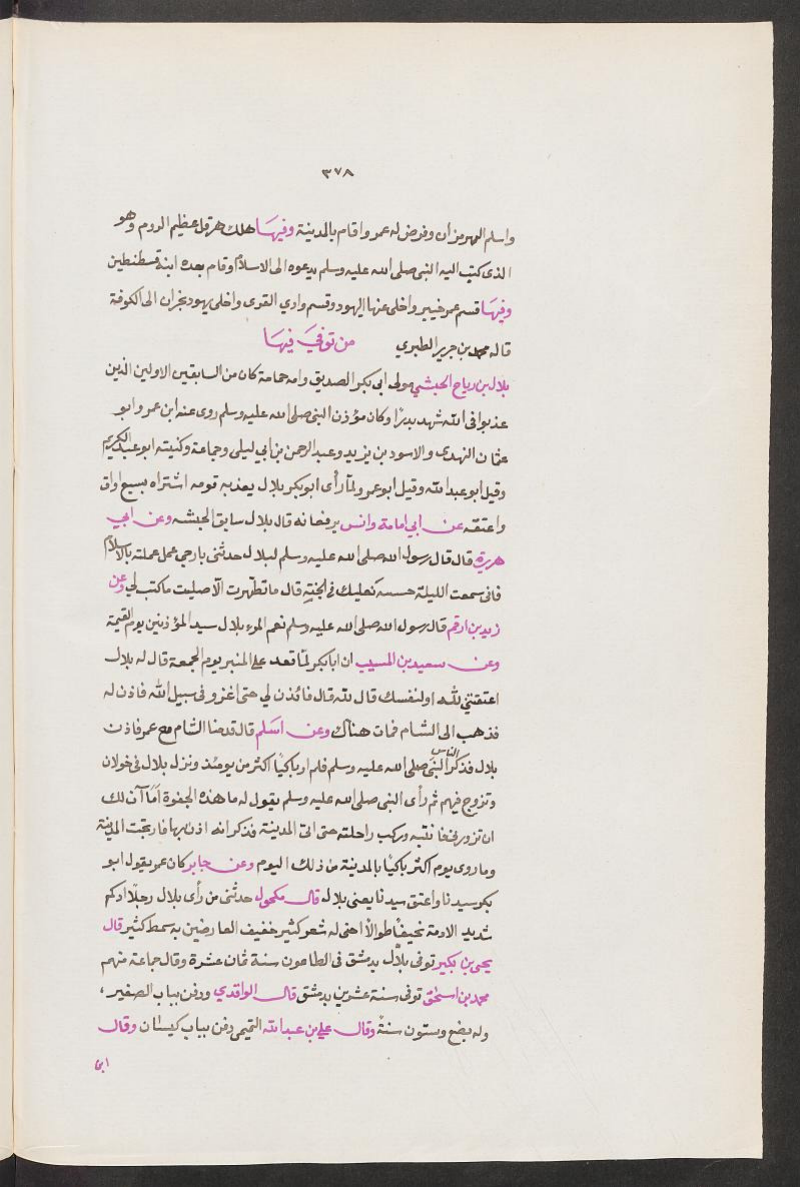 ٣٧٨
واسلم الهرمزان وفرض له عمر واقام بالمدينة وفيها هلك هرقل عظيم الروم وهو
الذى كتب اليه النبى صلى الله عليه وسلم يدعوه الى الاسلام وقام بعده ابنه قسطنطين
وفيها قسم عمر خيبر واخلى عنها اليهود وقسم وادي القرى واخلى يهود نجران الى الكوفة
قاله محمد بن جرير الطبري من توفي فيها
بلال بن رباح الحبشي مولى ابي بكر الصديق وامه حمامة كان من السابقين الاولين الذين
عذبوا فى الله شهد بدرا وكان مؤذن النبي صلى الله عليه وسلم روى عنه ابن عمر وابو
عثمان النهدى والاسود بن يزيد وعبد الرحمن بن ابي ليلى وجماعة وكنيته ابو عبد الكريم
وقيل ابو عبد الله وقيل ابو عمر ولما رأى ابو بكر بلال يعذبه قومه اشتراه بسبع اواق
واعتقه عن ابي امامة وانس يرفعانه قال بلال سابق الحبشه وعن ابي
هريرة قال قال رسول الله صلى الله عليه وسلم لبلال حدثنى بارجى عمل عملته بالاسلام
فانى سمعت الليلة حسسه نعليك فى الجنة قال ما تطهرت الا صليت ما كتب لي وعن
زيد بن ارقم قال رسول الله صلى الله عليه وسلم نعم المرء بلال سيد المؤذنين يوم القيمة
وعن سعيد بن المسيب ان ابا بكر لما قعد على المنبر يوم الجمعة قال له بلال
اعتقتني لله او لنفسك قال لله قال فائذن لي حتى اغزو فى سبيل الله فاذن له
فذهب الى الشام فمات هناك وعن اسلم قال قدمنا الشام مع عمر فاذن
بلال فذكر الناس النبى صلى الله عليه وسلم فلم ار باكيا اكثر من يومئذ ونزل بلال فى خولان
وتزوج فيهم ثم رأى النبى صلى الله عليه وسلم يقول له ما هذه الجفوة اما آن لك
ان تزورنى فانتبه وركب راحلته حتى اتى المدينة فذكر انه اذن بها فارتجت المدينة
وما روى يوم اكثر باكيا بالمدينة من ذلك اليوم وعن جابر كان عمر يقول ابو
بكر سيدنا واعتق سيدنا يعنى بلال قال مكحول حدثنى من رأى بلال رجلا ادم
شديد الادمة نحيفا طوالا احنى له شعر كثير خفيف العارضين به سمط كثير قال
يحيى بن بكير توفى بلال بدمشق فى الطاعون سنة ثمان عشرة وقال جماعة منهم
محمد بن اسحق توفى سنة عشرين بدمشق قال الواقدي ودفن بباب الصغير ،
وله بضع وستون سنة وقال علي بن عبد الله التميمى دفن بباب كيسان وقال